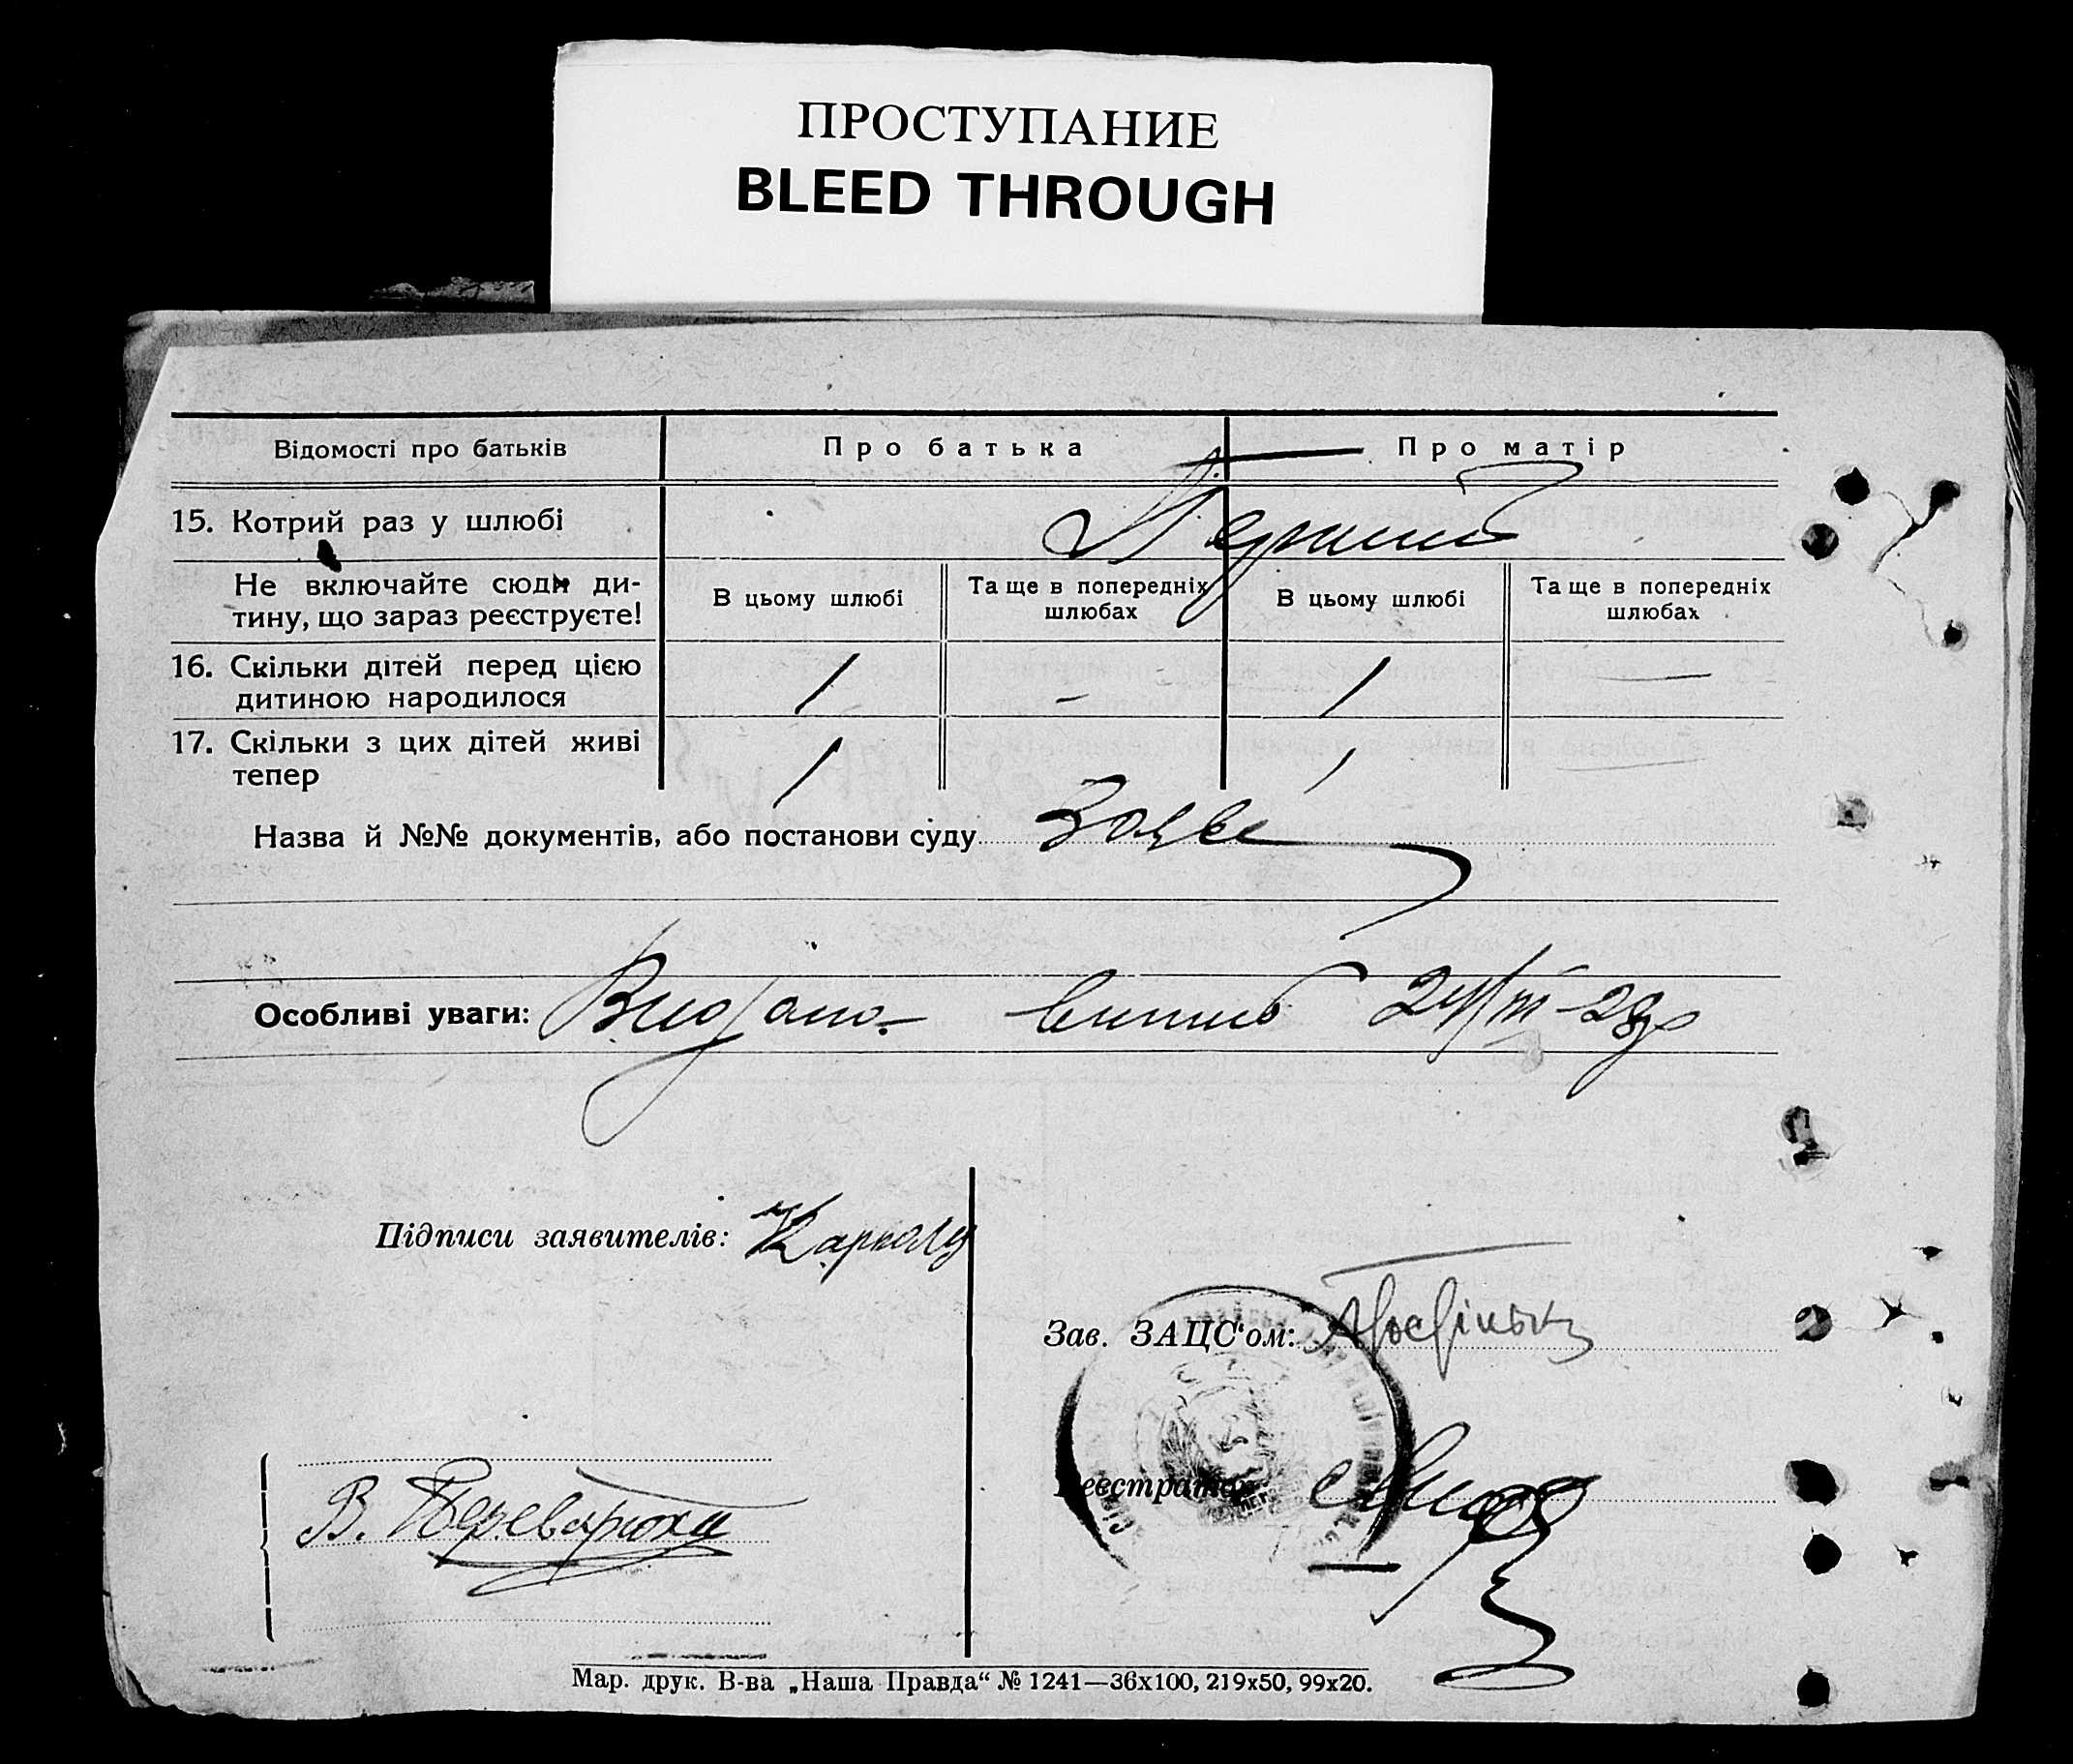 ПРОСТУПАНИЕ
BLEED THROUGH
Відомості про батьків
Про батька
Про матір
15. Котрий раз у шлюбі
Перший
Не включайте сюди ди-
тину, що зараз реєструєте!
В цьому шлюбі
Та ще в попередніх
шлюбах
В цьому шлюбі
Та ще в попередніх
шлюбах
16. Скільки дітей перед цією
дитиною народилося
1
–
1
—
17. Скільки з цих дітей живі
тепер
1
1
Назва й №№ документів, або постанови суду
Особливі уваги: Видано
Підписи заявителів:
Зав. ЗАЦС‘ом:
Реєстратор
В. Переварюха
Мар. друк. В-ва „Наша Правда“ № 1241—36х100, 219х50, 99х20.